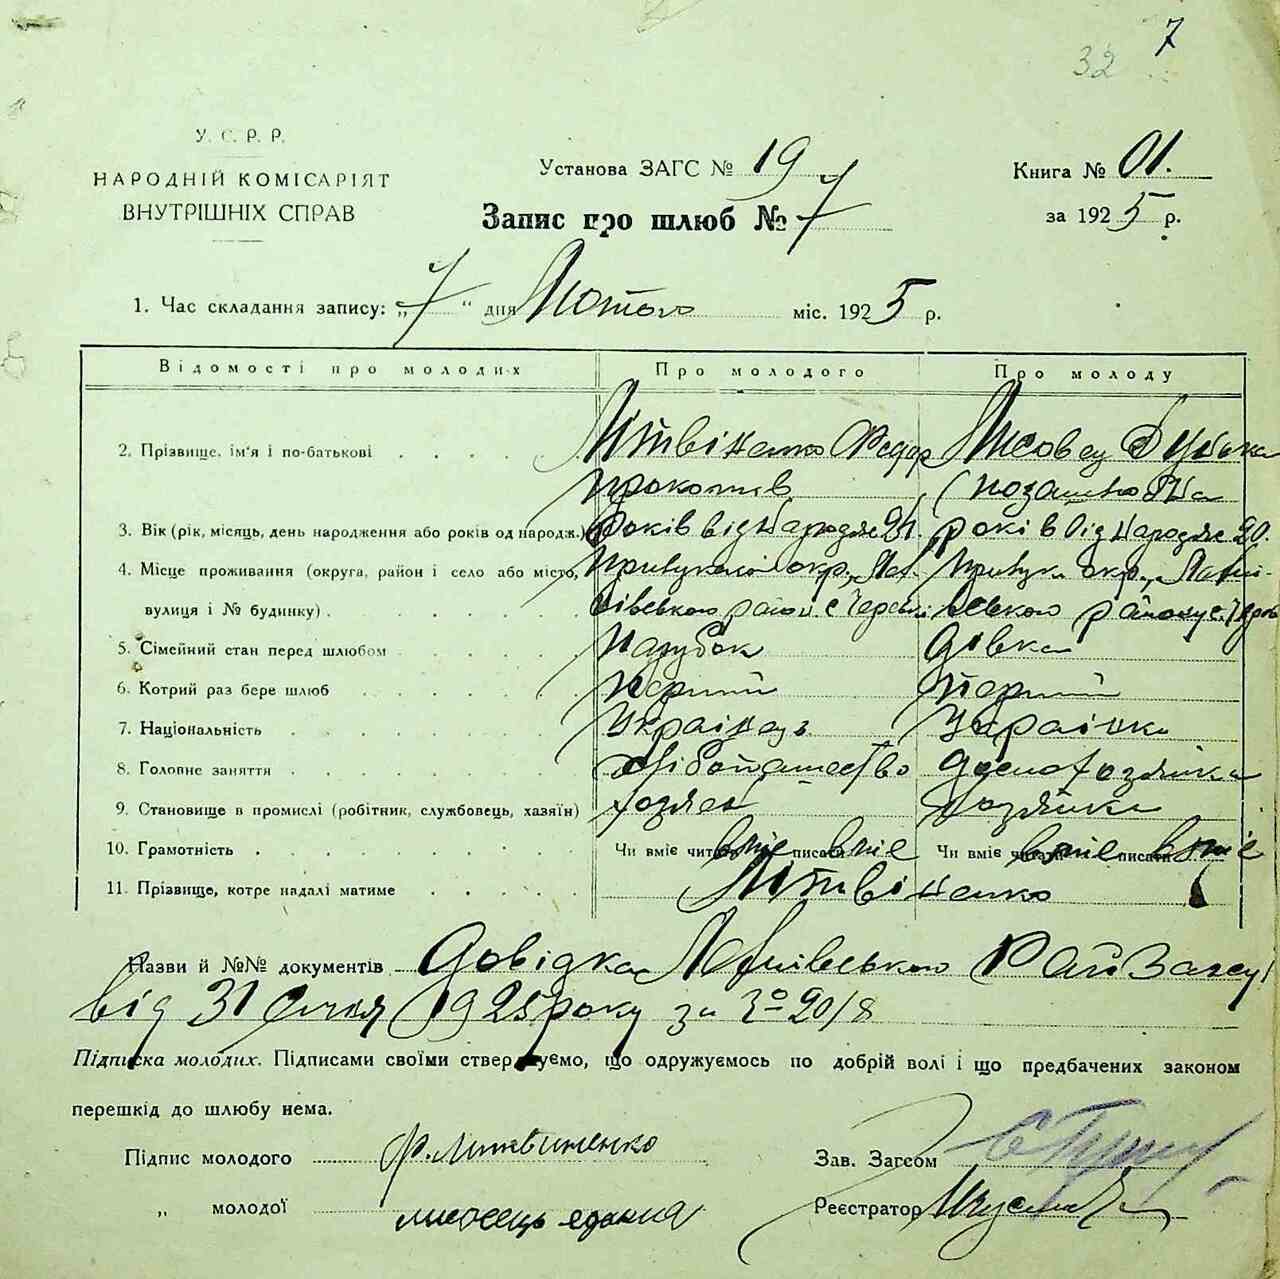 7
32
У. С. Р. Р.
НАРОДНІЙ КОМІСАРІЯТ
ВНУТРІШНІХ СПРАВ
Установа ЗАГС № 19
Книга № 01.
Запис про шлюб № 7
за 1925 р.
1. Час складання запису: „7“ дня Лютого міс. 1925 р.
Відомості про молодих Про молодого Про молоду
2. Прізвище, ім'я і по-батькові Літвіненко Федор Лисовец
Прокопів
3. Вік (рік, місяць, день народження або років од народж.) Років від народже 21. років від народже 20.
4. Місце проживання (округа, район і село або місто, окр., окр.,
вулиця і № будинку)
5. Сімейний стан перед шлюбом Парубок Дівка
6. Котрий раз бере шлюб Перший Перший
7. Національність Українець Українка
8. Головне заняття Хліборобство домохозяйка
9. Становище в промислі (робітник, службовець, хазяїн) хозяен хозяйка
10. Грамотність Чи вміє читати вміє писати вміє Чи вміє читати вміє писати вміє
11. Прізвище, котре надалі матиме Літвіненко
Назви й №№ документів Довідка Райзагсу
від 31 січня 1925 року за № 20/8
Підписка молодих. Підписами своїми стверджуємо, що одружуємось по добрій волі і що предбачених законом
перешкід до шлюбу нема.
Підпис молодого Ф. Литвиненко
Зав. Загсом
„ молодої лисовець
Реєстратор